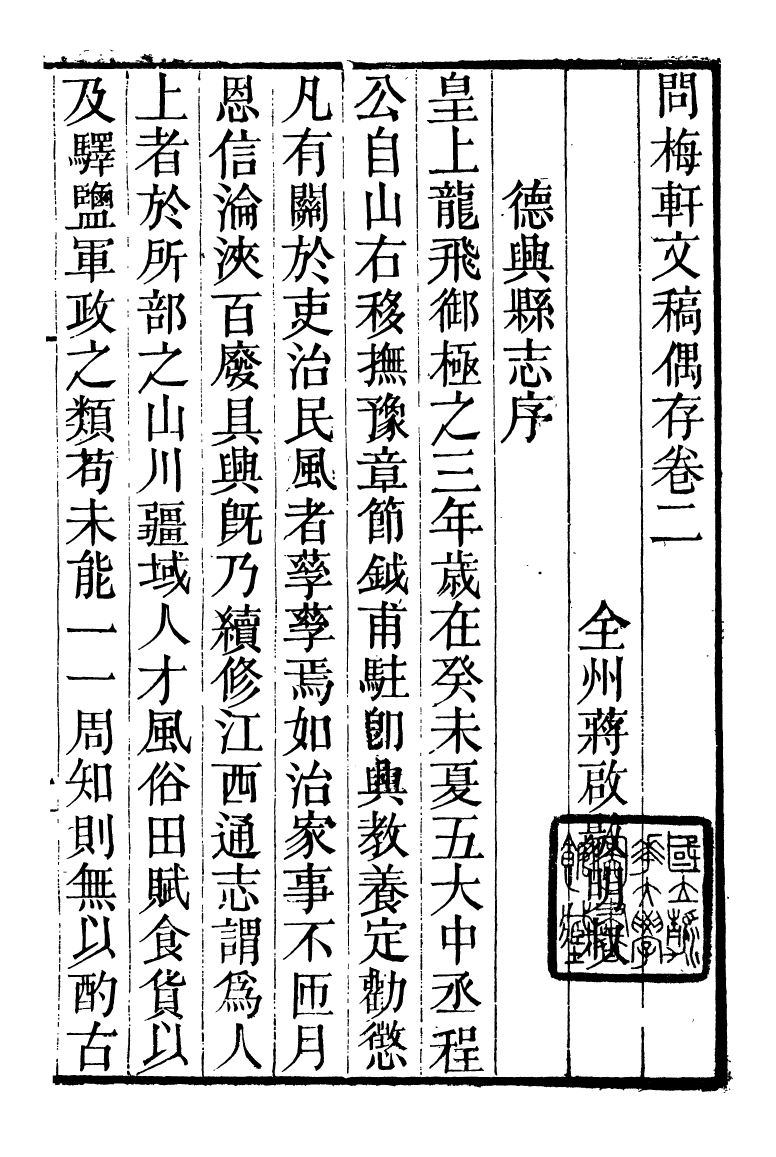 問梅軒文稿偶存卷二
全州蔣啟敭明叔
德興縣志序
皇上龍飛御極之三年歲在癸未夏五大中丞程
公自山右移撫豫章節鉞甫駐卽興教養定勸懲
凡有關於吏治民風者孳孳焉如治家事不匝月
恩信淪浹百廢具興旣乃續修江西通志謂爲人
上者於所部之山川疆域人才風俗田賦食貨以
及驛鹽軍政之類苟未能一一周知則無以酌古